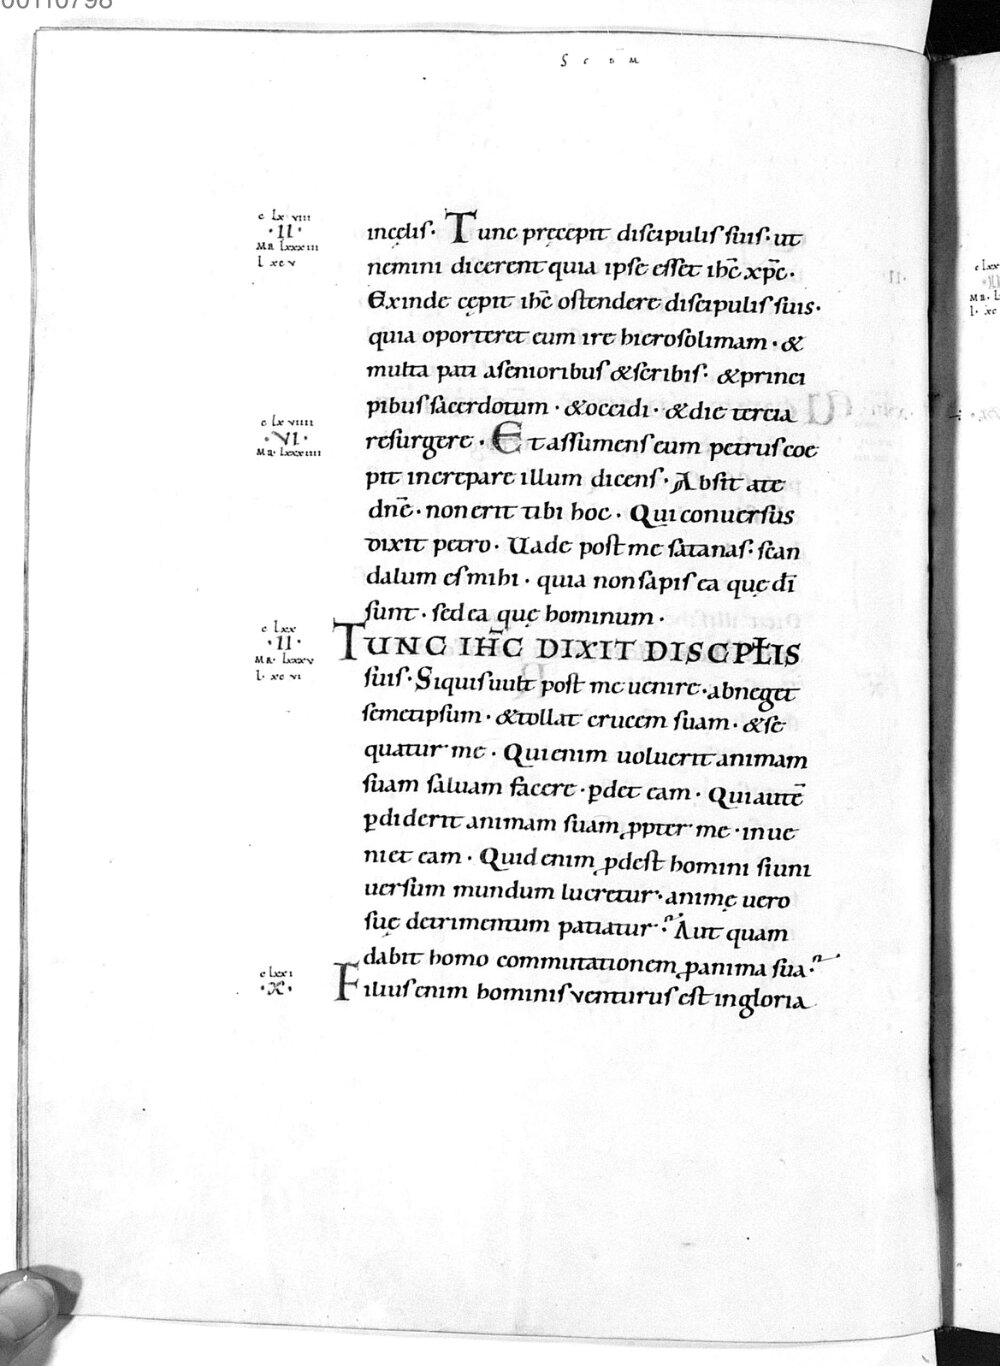 00110798
S C D M
c lxviii
·II·
Ma lxxxiii
l xcv
incęlis· Tunc pręcepit discipulis suis· ut
nemini dicerent quia ipse esset ihc̄ xpc̄·
Exinde cępit ihc̄ ostendere discipulis suis·
quia oporteret eum ire hierosolimam· &
multa pati a senioribus & scribis· & princi
pibus sacerdotum· & occidi· & die tercia
c lxviiii
·VI·
Ma· lxxxiiii
resurgere· Et assumens eum petrus coe
pit increpare illum dicens· Absit a te
dnē· non erit tibi hoc· Qui conuersus
dixit petro· Uade post me satanas· scan
dalum es mihi· quia non sapis ea quę dī
sunt· sed ea quę hominum·
c lxx
·II·
Ma· lxxxv
l· xcvi
TUNC IHC̄ DIXIT DISCPŁIS
suis· Siquis uult post me uenire· abneget
semetipsum· & tollat crucem suam· & se
quatur me· Qui enim uoluerit animam
suam saluam facere· ꝑdet eam· Qui autē
ꝑdiderit animam suam ꝓpter me· inue
niet eam· Quid enim ꝓdest homini si uni
uersum mundum lucretur· animę uero
suę detrimentum patiatur· Aut quam
dabit homo commutationem ꝓ anima sua·
c lxxi
·X·
Filius enim hominis venturus est in gloria